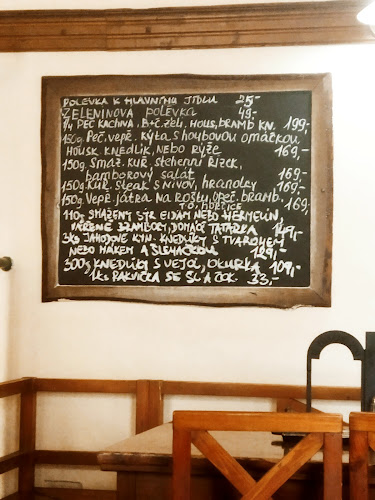 POLÉVKA K HLAVNÍMU JÍDLU 25,-
ZELENINOVÁ POLÉVKA 49,-
1/4 PEČ KACHNA, B+Č. ZELÍ, HOUS, BRAMB KN. 199,-
150g Peč. vepř. kýta s houbovou omáčkou,
HOUSK. KNEDLÍK, NEBO RÝŽE 169,-
150g. Smaž. kuř. stehenní řízek,
bramborový salát 169,-
150g. Kuř. Steak s nivou, hranolky 169,-
150g. Vepř. játra na roštu, opeč. bramb.
T.O, HOŘČICE 169,-
110g SMAŽENÝ SÝR EIDAM NEBO HERMELÍN,
VAŘENÉ BRAMBORY, DOMÁCÍ TATARKA 149,-
3ks JAHODOVÉ KYN. KNEDLÍKY S TVAROHEM
NEBO MÁKEM A ŠLEHAČKOU 129,-
300g KNEDLÍKY S VEJCI, OKURKA 109,-
1ks RAKVIČKA SE ŠL A ČOK. 33,-